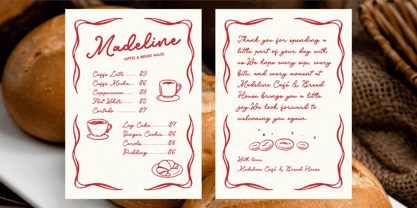 Madeline
COFFEE & BREAD HOUSE
Caffe Latte ..... $9
Caffe Mocha ... $6
Cappuccino ..... $8
Flat White ..... $5
Cortado ..... $7
Log Cake ..... $7
Ginger Cookie ... $6
Canele ..... $8
Pudding ..... $6
Thank you for spending a
little part of your day with
us. We hope every sip, every
bite, and every moment at
Madeline Café & Bread
House brings you a little
joy. We look forward to
welcoming you again.
With love,
Madeline Café & Bread House